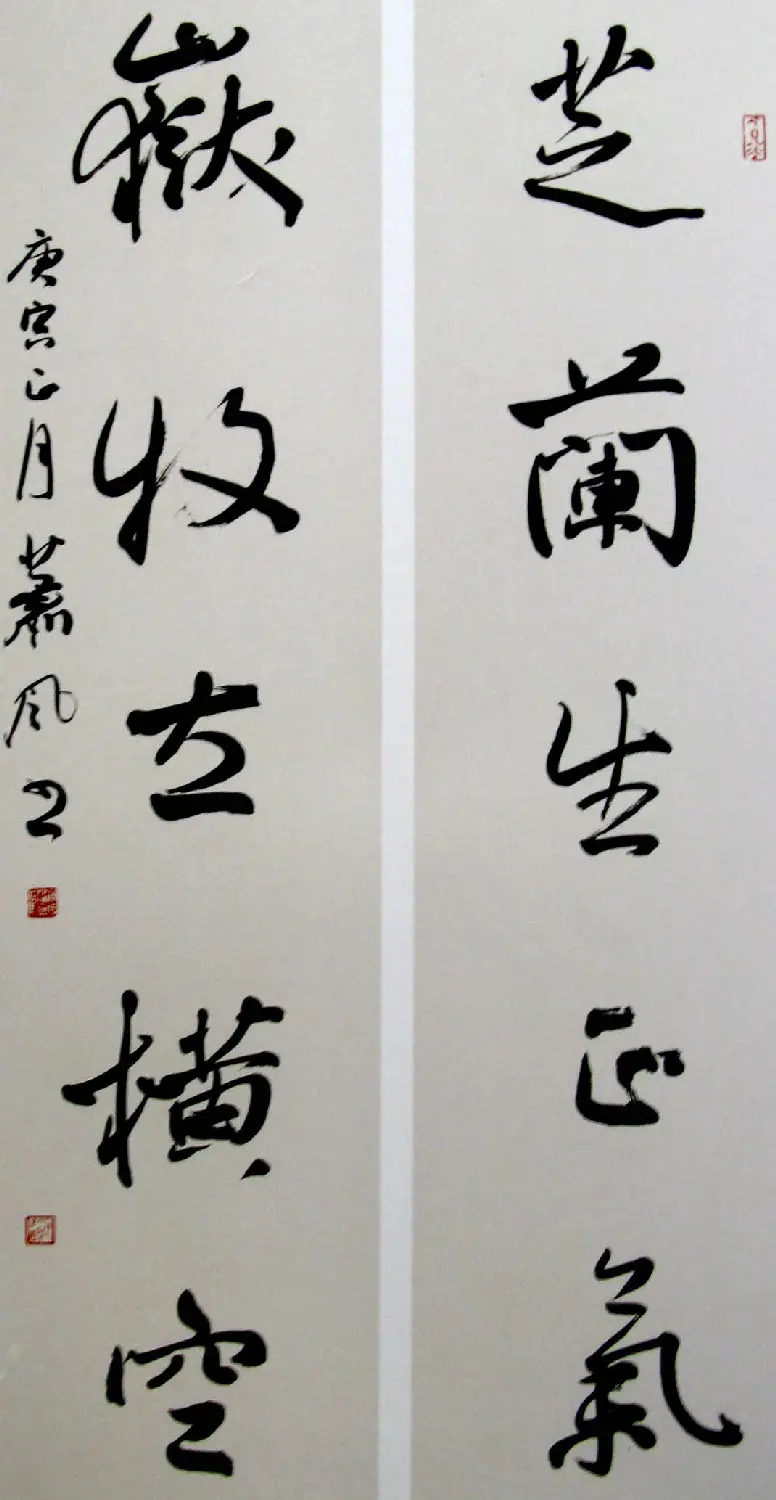 芝蘭生正氣
嶽牧立橫空
庚寅正月蕭風书